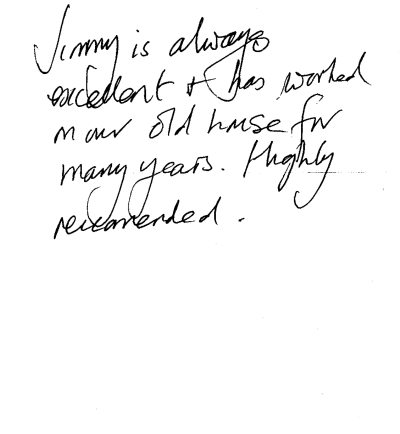 Jimmy is always
excellent + has worked
in our old house for
many years. Highly
recomended.